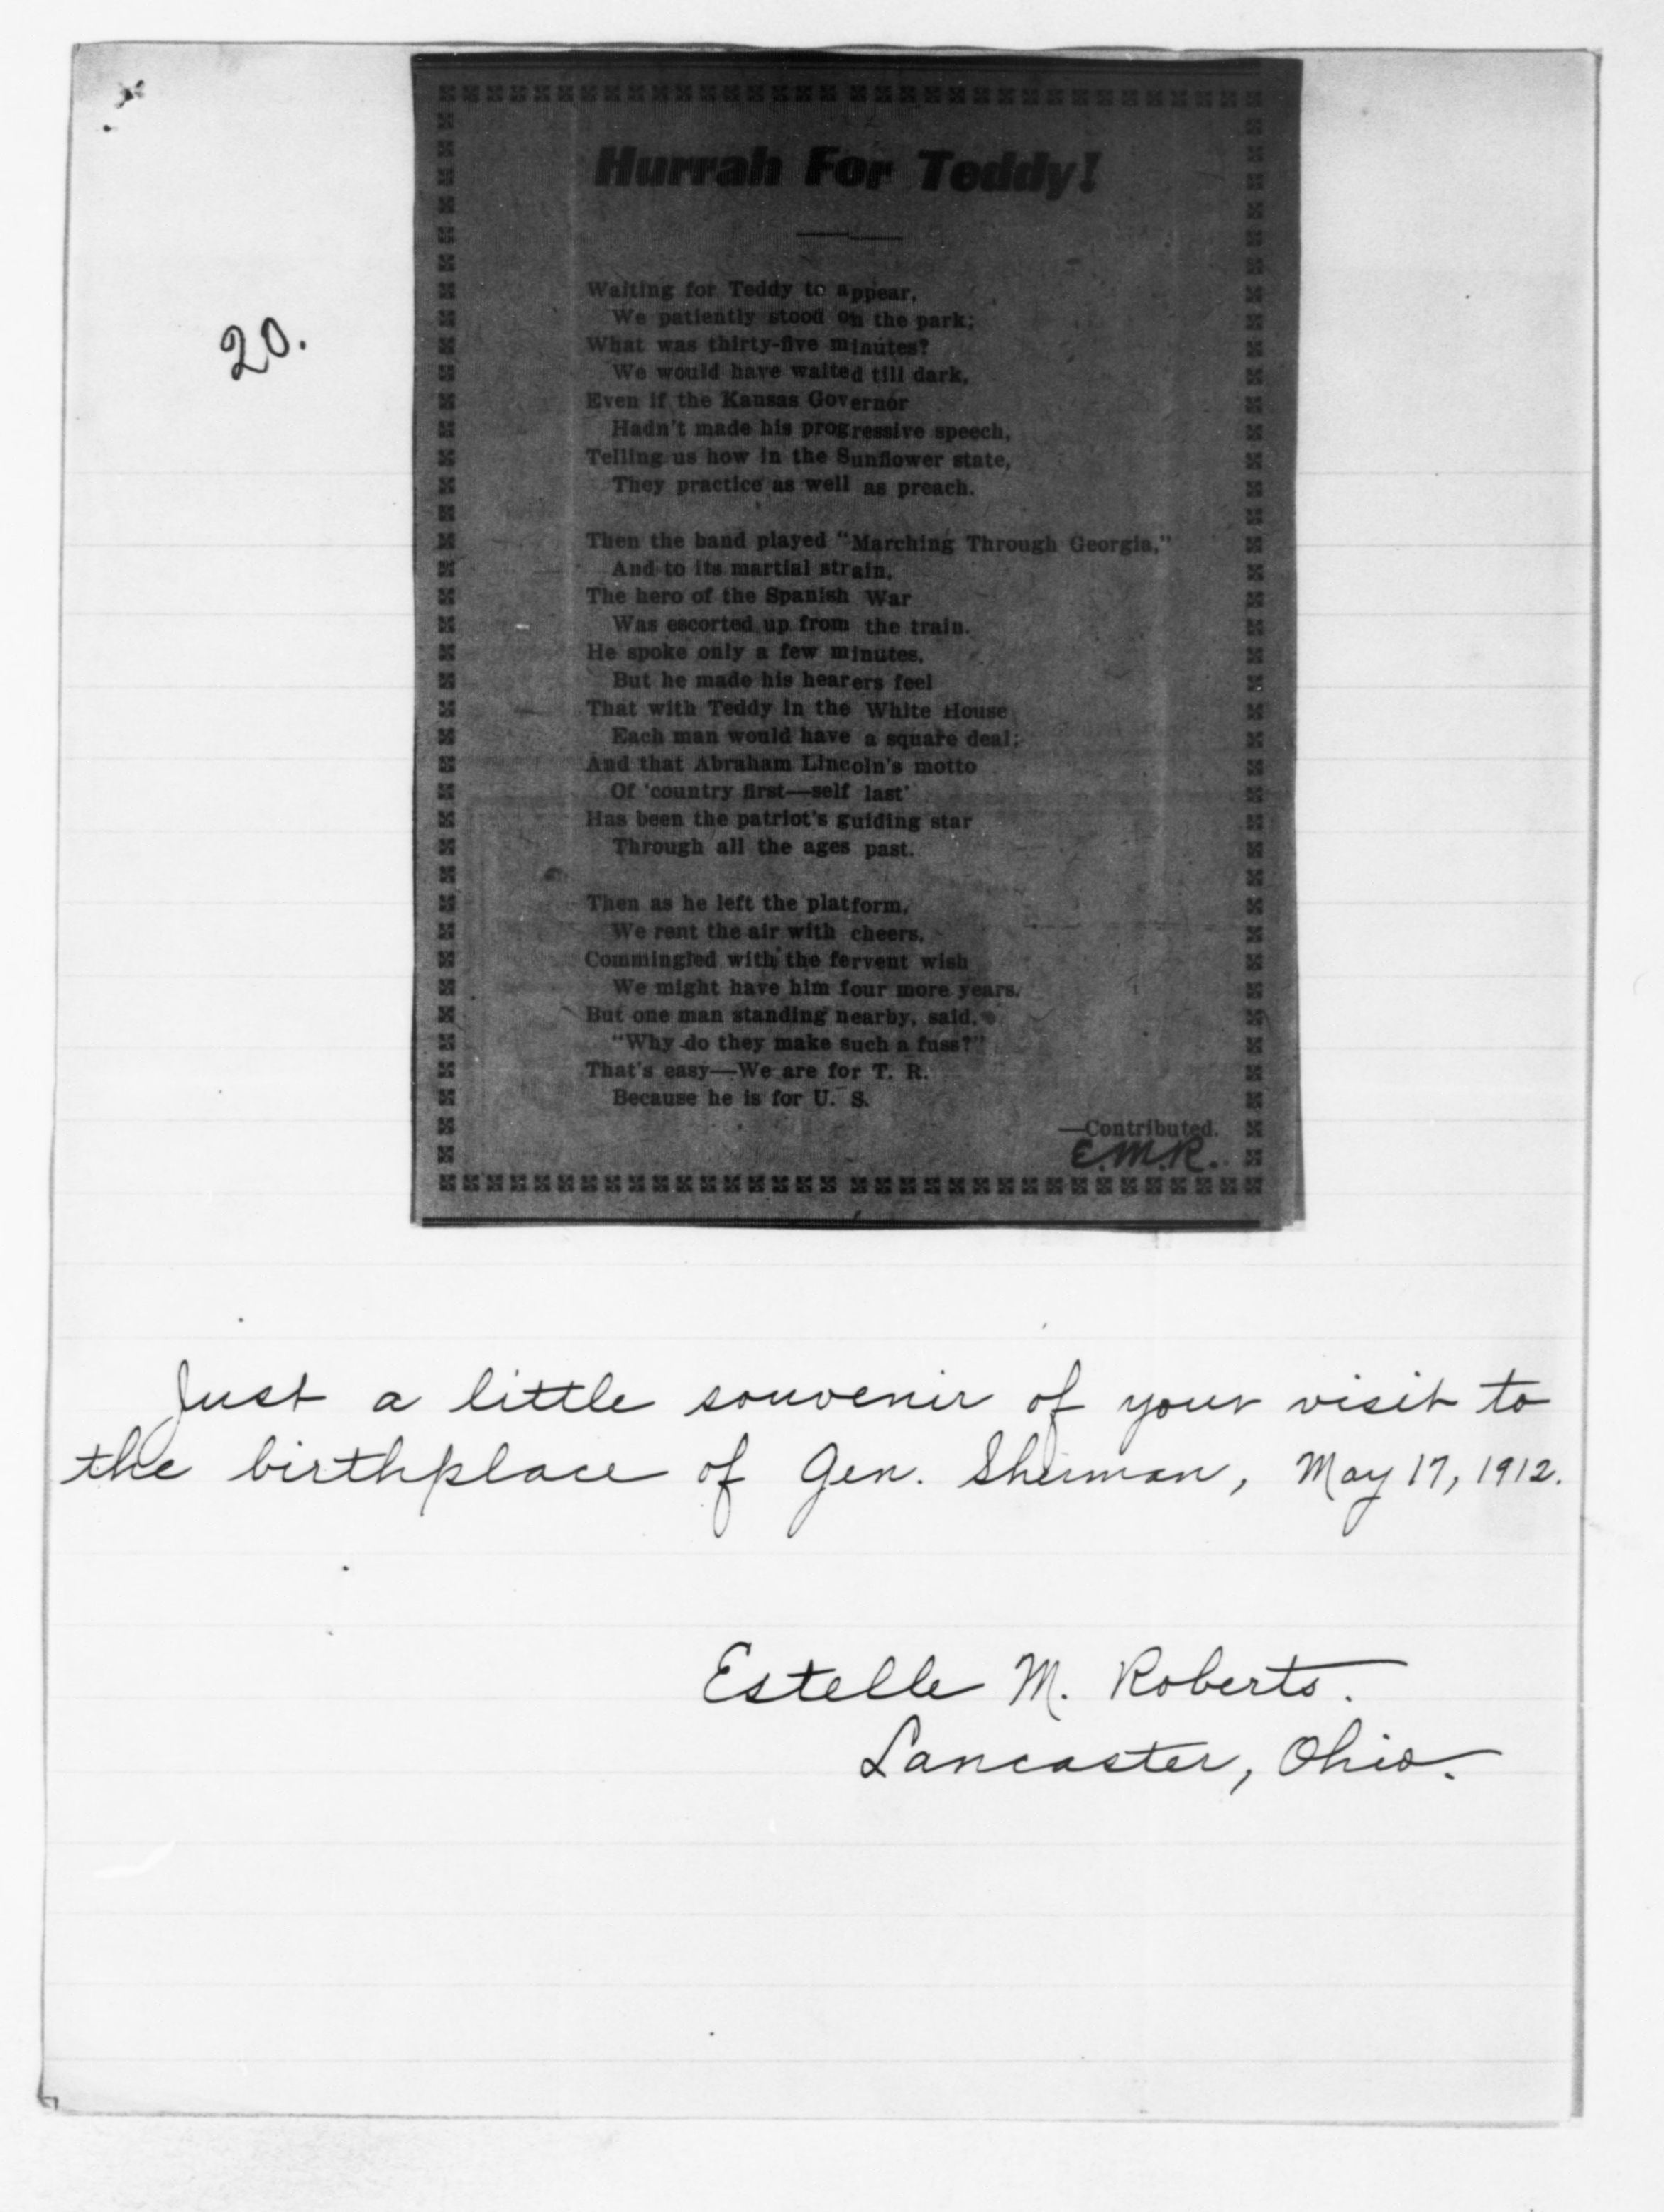 Hurrah For Teddy!
20.
Waiting for Teddy to appear,
We patiently stood on the park;
What was thirty-five minutes?
We would have waited till dark,
Even if the Kansas Governor
Hadn't made his progressive speech,
Telling us how in the Sunflower state,
They practice as well as preach.
Then the band played "Marching Through Georgia,"
And to its martial strain,
The hero of the Spanish War
Was escorted up from the train.
He spoke only a few minutes,
But he made his hearers feel
That with Teddy in the White House
Each man would have a square deal;
And that Abraham Lincoln's motto
Of 'country first—self last'
Has been the patriot's guiding star
Through all the ages past.
Then as he left the platform,
We rent the air with cheers,
Commingled with the fervent wish
We might have him four more years.
But one man standing nearby, said,
"Why do they make such a fuss?"
That's easy—We are for T. R.
Because he is for U. S.
—Contributed.
E.M.R.
Just a little souvenir of your visit to
the birthplace of Gen. Sherman, May 17, 1912.
Estelle M. Roberts.
Lancaster, Ohio.